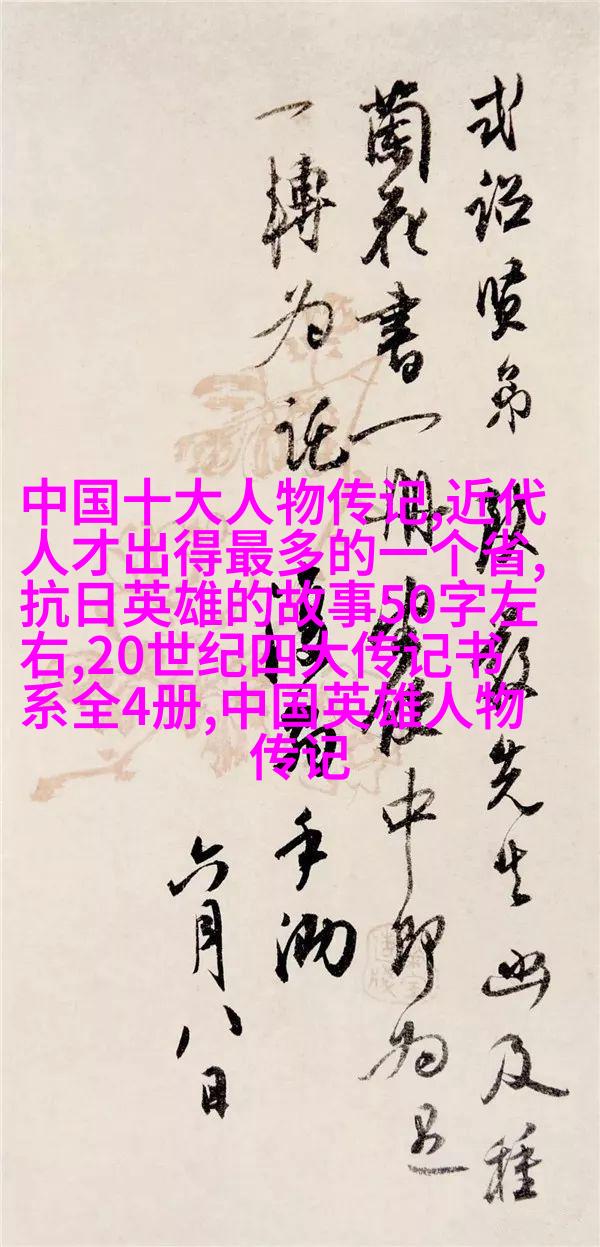 中国十大人物传记,近代
人才出得最多的一个省,
抗日英雄的故事50字左
右,20世纪四大传记书
系全4册,中国英雄人物
传记
贤弟先生函及種
蘭花書一冊中即为
一轉为託
手泐
六月八日